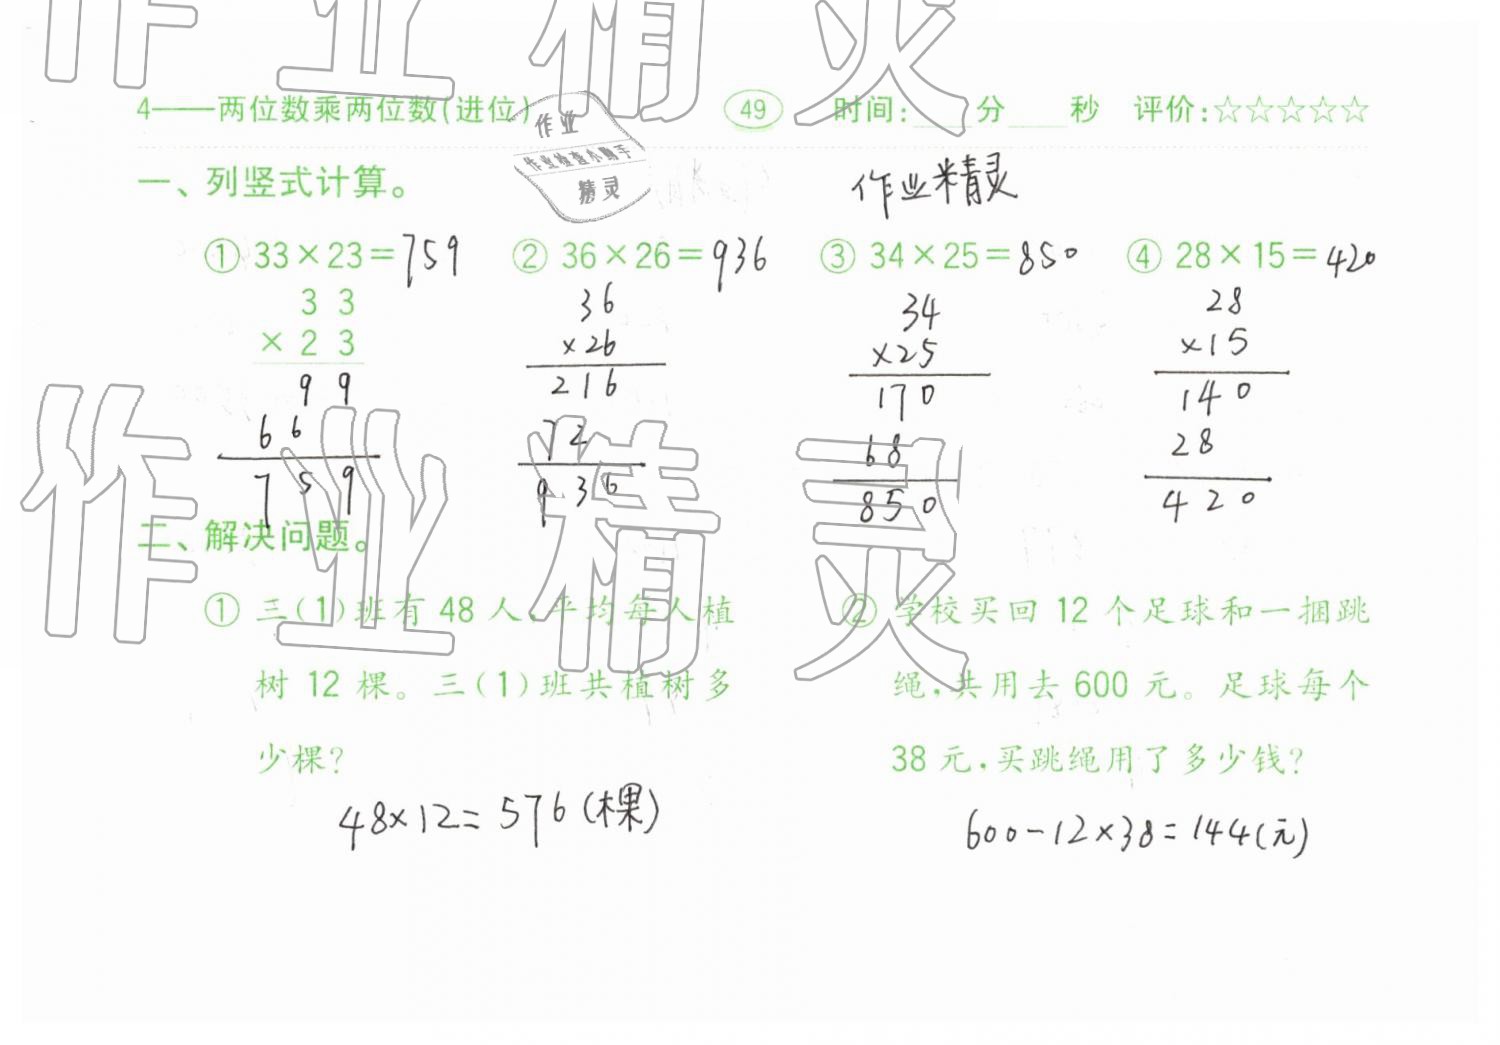 作业精灵
4——两位数乘两位数(进位) 49 时间:____分____秒 评价:☆☆☆☆☆
作业
作业检查小助手
精灵
一、列竖式计算。
作业精灵
① 33×23=759 ② 36×26=936 ③ 34×25=850 ④ 28×15=420
33 36 34 28
×23 ×26 ×25 ×15
99 216 170 140
66 72 68 28
759 936 850 420
作业精灵
二、解决问题。
① 三(1)班有 48 人,平均每人植
树 12 棵。三(1)班共植树多
少棵?
48×12=576(棵)
② 学校买回 12 个足球和一捆跳
绳,共用去 600 元。足球每个
38 元,买跳绳用了多少钱?
600-12×38=144(元)